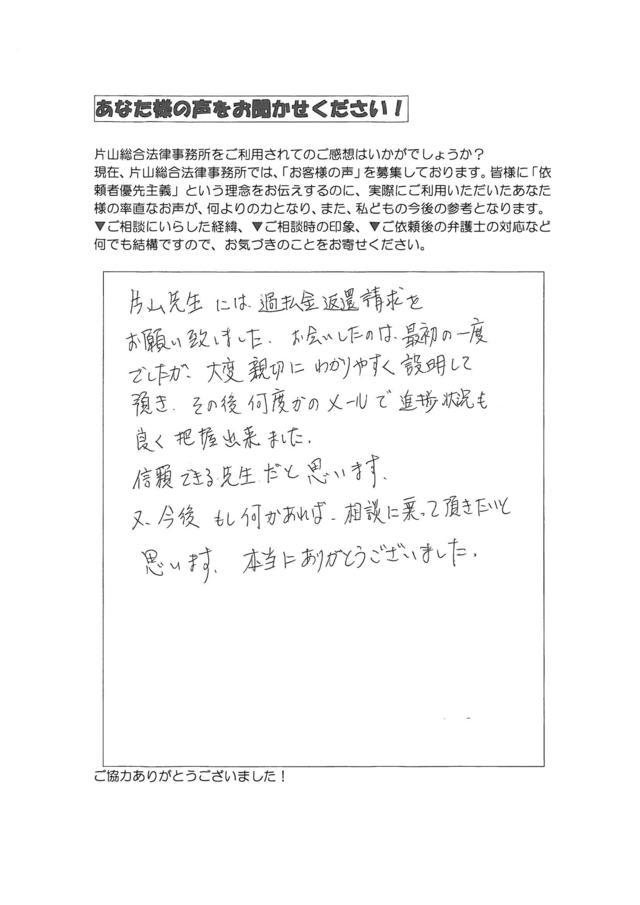 あなた様の声をお聞かせください！
片山総合法律事務所をご利用されてのご感想はいかがでしょうか？
現在、片山総合法律事務所では、「お客様の声」を募集しております。皆様に「依
頼者優先主義」という理念をお伝えするのに、実際にご利用いただいたあなた
様の率直なお声が、何よりの力となり、また、私どもの今後の参考となります。
▼ご相談にいらした経緯、▼ご相談時の印象、▼ご依頼後の弁護士の対応など
何でも結構ですので、お気づきのことをお寄せください。
片山先生には、過払金返還請求を
お願い致しました。お会いしたのは、最初の一度
でしたが、大変親切にわかりやすく説明して
頂き、その後何度かのメールで進捗状況も
良く把握出来ました。
信頼できる先生だと思います。
又、今後もし何かあれば、相談に乗って頂きたいと
思います。本当にありがとうございました。
ご協力ありがとうございました！